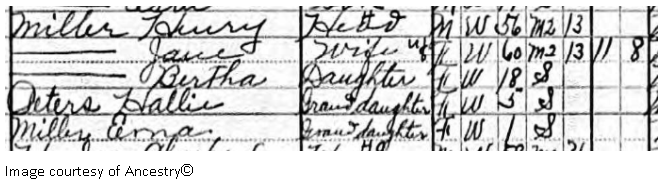 Miller Henry Head M W 56 M2 13
— Jane Wife F W 60 M2 13 11 8
— Bertha Daughter F W 18 S
Peters Hallie Granddaughter F W 5 S
Miller Erna Granddaughter F W 1 S
Image courtesy of Ancestry©